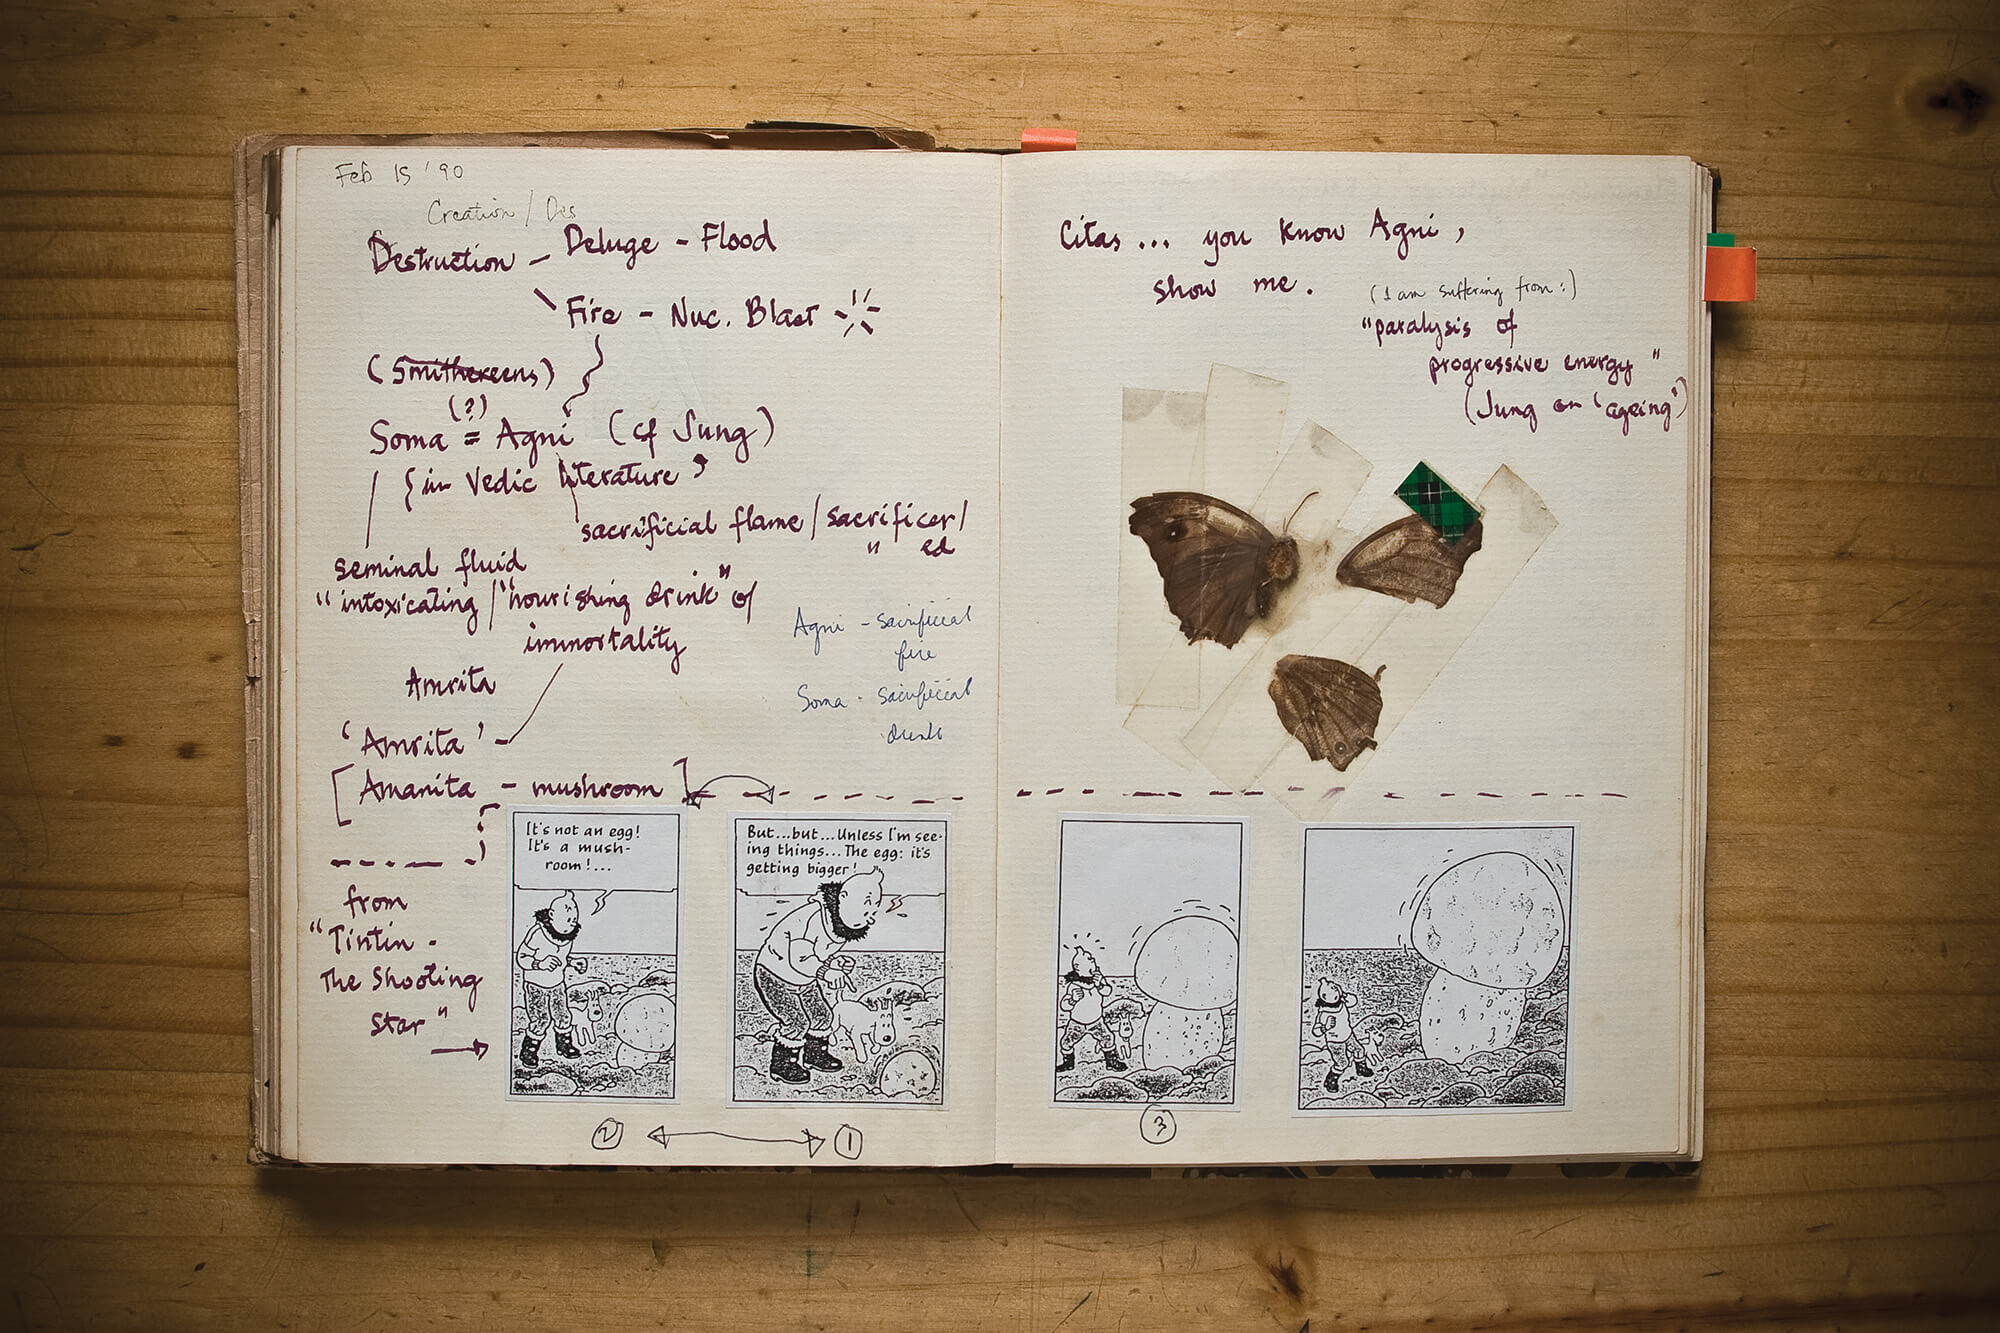 Feb 15 '90
Creation / Des
Destruction - Deluge - Flood
Fire - Nuc. Blast
(Smithereens)
(?)
Soma = Agni (cf Jung)
{in Vedic literature }
sacrificial flame / sacrificer /
" ed
seminal fluid
"intoxicating / "nourishing drink" of
immortality
Amrita
'Amrita' -
[Amanita - mushroom]
Agni - sacrificial
fire
Soma - sacrificial
drink
from
"Tintin -
The Shooting
Star"
It's not an egg!
It's a mush-
room!...
But...but...Unless I'm see-
ing things...The egg: it's
getting bigger!
2
1
Citas... you know Agni,
show me.
(I am suffering from:)
"paralysis of
progressive energy"
(Jung on 'ageing')
3